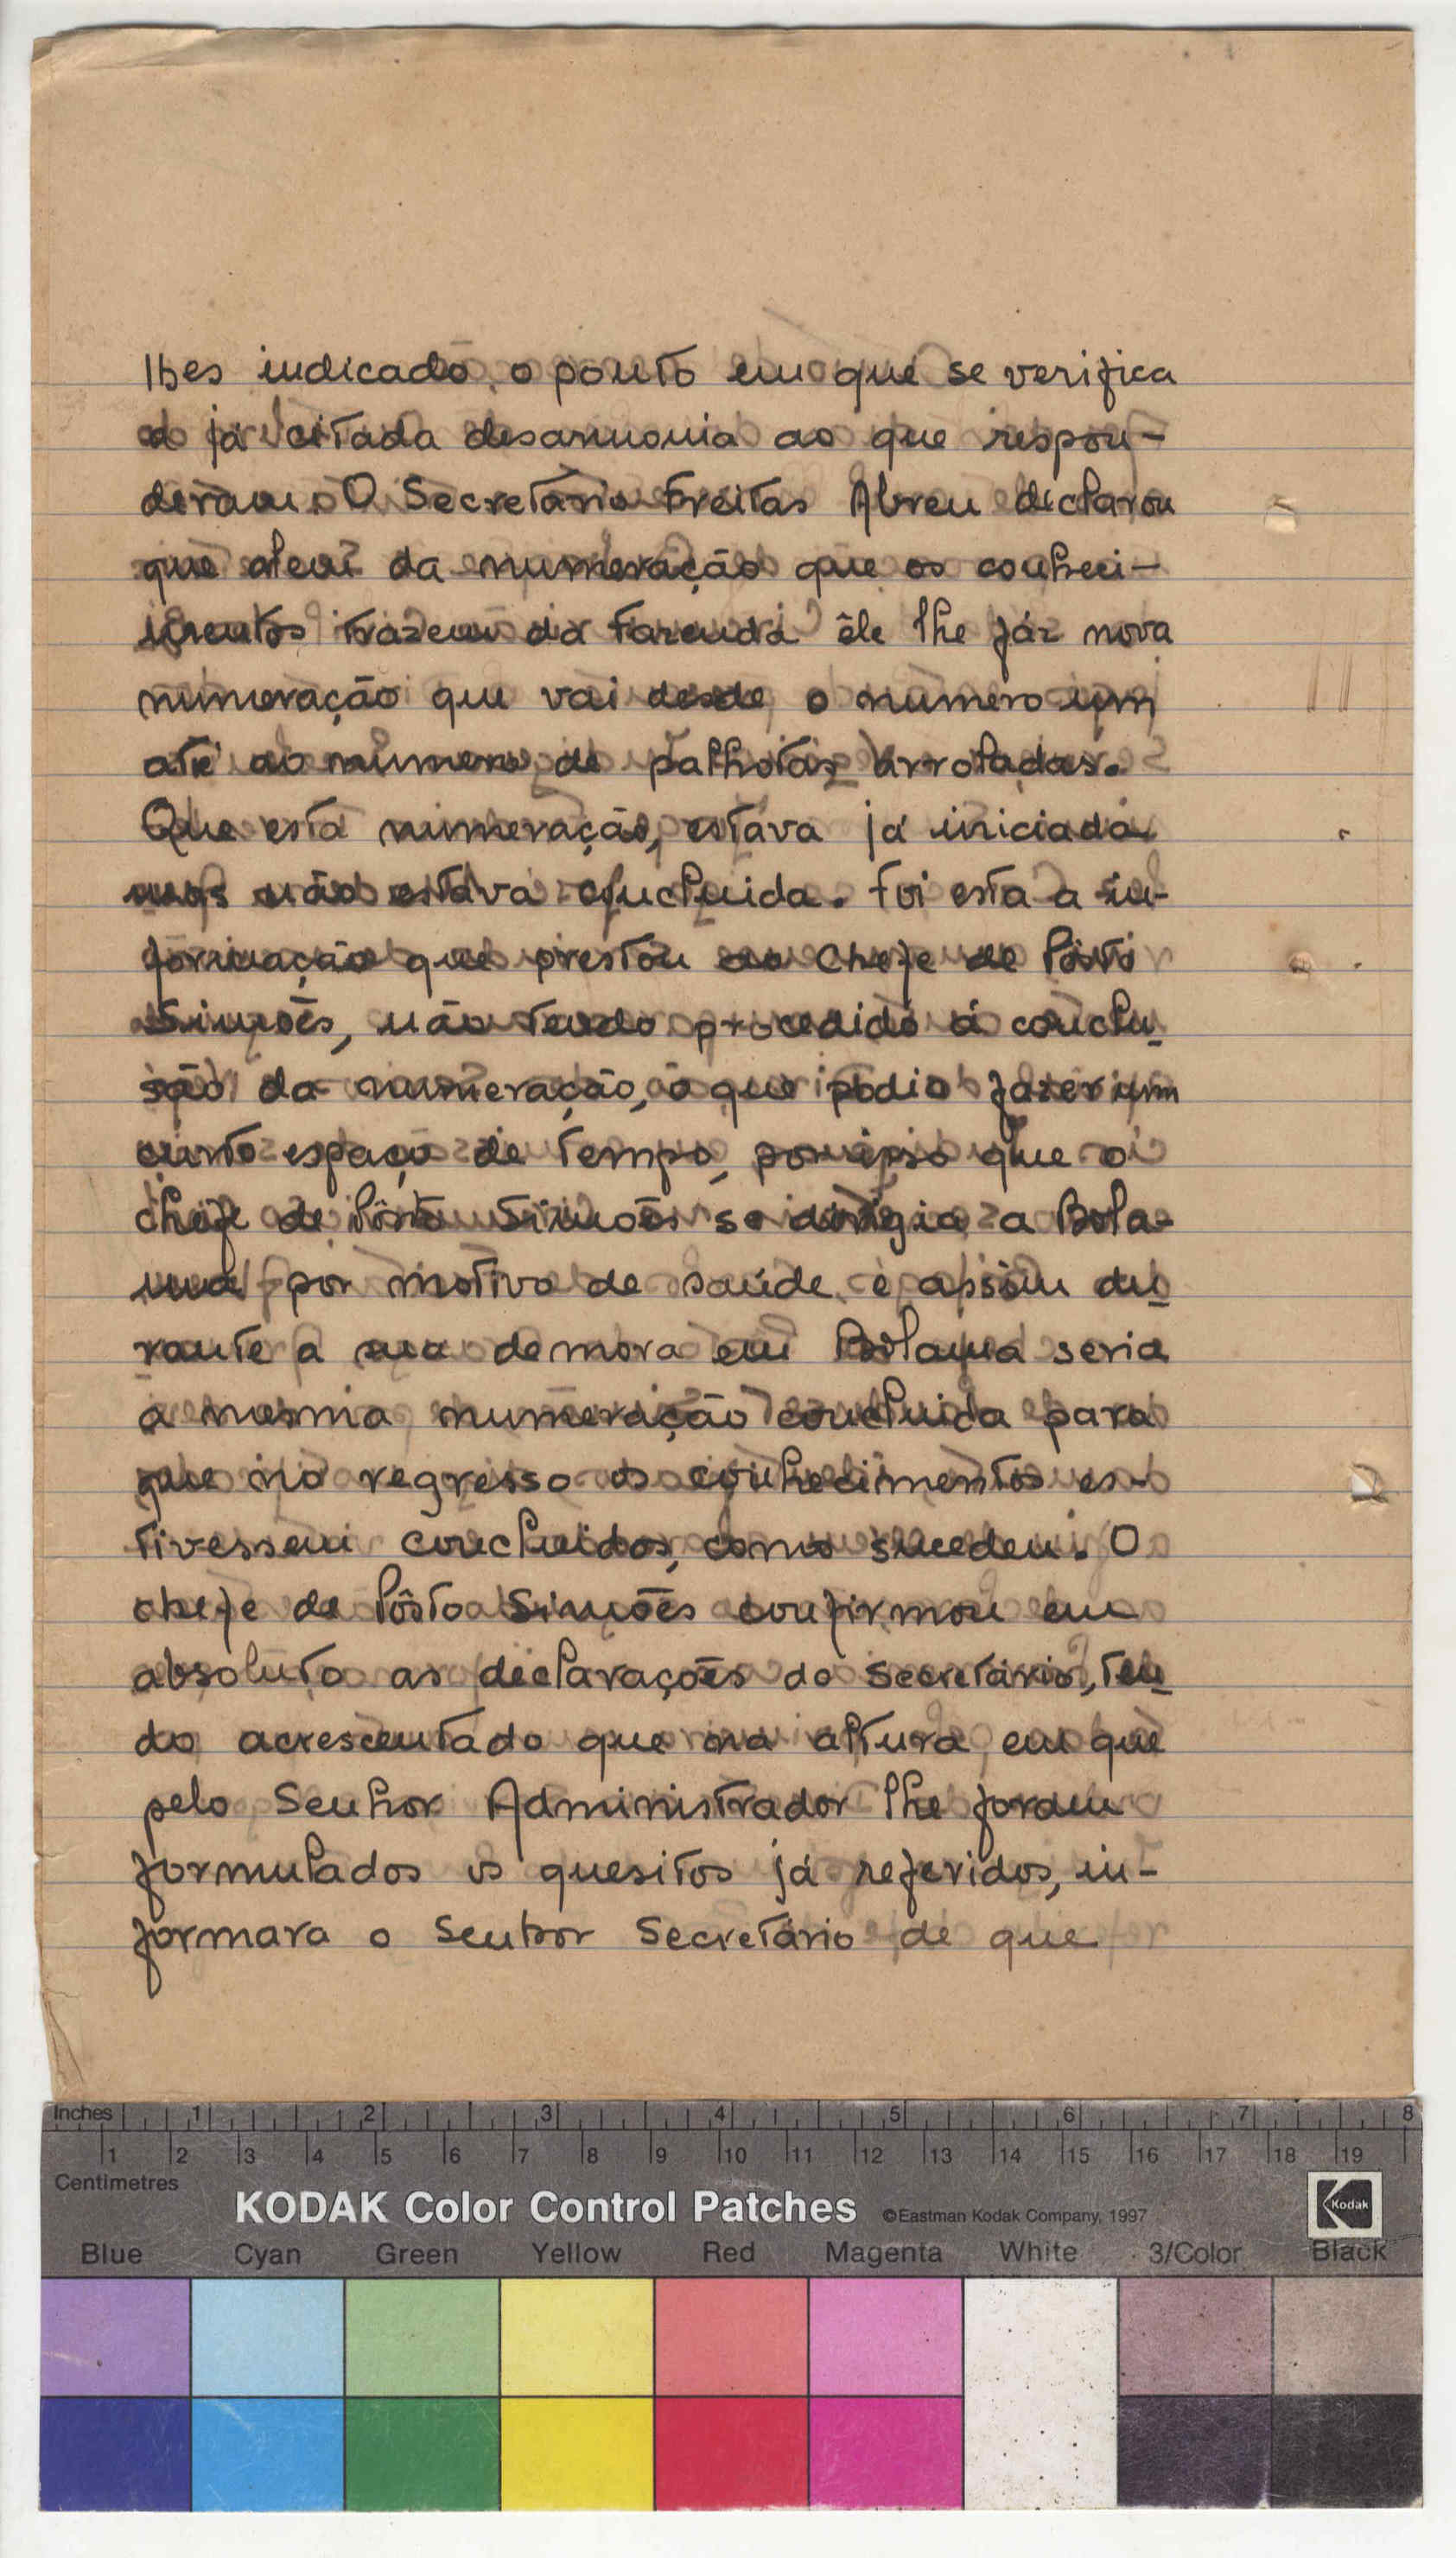 lhes indicado, o ponto em que se verifica
a já citada desarmonia ao que respon-
deram. O Secretário Freitas Abreu declarou
que alem da numeração que os conheci-
mentos trazem da Fazenda êle lhe fáz nova
numeração que vai desde o numero um
até ao numero de palhotas arroladas.
Que esta numeração, estava já iniciada
mas não estava concluida. Foi esta a in-
formação que prestou ao Chefe de Pôsto
Simões, não tendo procedido á conclu-
são da numeração, o que podia fazer um
curto espaço de tempo, por isso que o
chefe de Pôsto Simões se dirigia a Bola-
ma por motivo de saúde e assim du-
rante a sua demora em Bolama seria
a mesma numeração concluida para
que no regresso os conhecimentos es-
tivessem concluidos, como sucedeu. O
chefe de Pôsto Simões confirmou em
absoluto as declarações do Secretário, ten-
do acrescentado que na altura em que
pelo Senhor Administrador lhe foram
formulados os quesitos já referidos, in-
formara o Senhor Secretário de que
Inches 1 2 3 4 5 6 7 8
1 2 3 4 5 6 7 8 9 10 11 12 13 14 15 16 17 18 19
Centimetres
KODAK Color Control Patches ©Eastman Kodak Company, 1997 Kodak
Blue Cyan Green Yellow Red Magenta White 3/Color Black